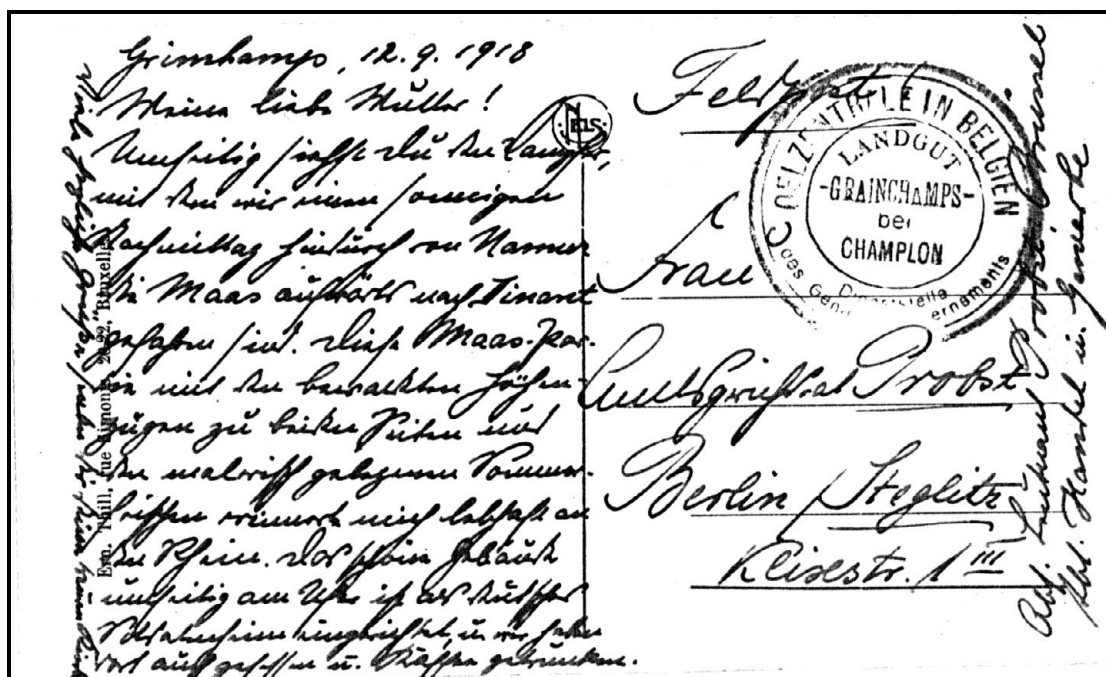 Grimchamps, 12.9.1918
Meine liebe Mutter!
Umseitig siehst Du den Dampfer,
mit dem wir einen sonnigen
Nachmittag hindurch von Namur
die Maas aufwärts nach Dinant
gefahren sind. Diese Maas-Par-
tie mit den bewaldeten Höhen-
zügen zu beiden Seiten und
den malerisch gelegenen Sommer-
frischen erinnert mich lebhaft an
den Rhein. Das schöne Gebäude
umseitig am Ufer ist als deutsches
Soldatenheim eingerichtet, u. wir haben
dort auch gesessen u. Kaffee getrunken.
Viele
Ern. Thill, rue 22, Bruxelles
NELS
Feldpost!
OELZENTRALE IN BELGIEN
LANDGUT
-GRAINCHAMPS-
bei
CHAMPLON
des Gen ernements
Frau
Amtsgerichtsrat Probst
Berlin / Steglitz
Kleiststr. 1 III
Abs. Leutnant Probst Brüssel
Abt. Handel u. Gewerbe